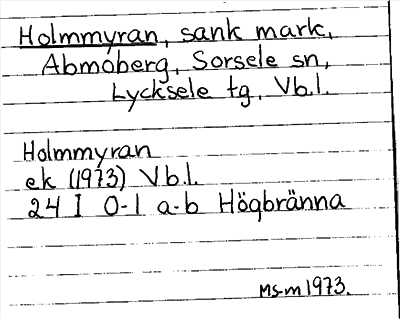 Holmmyran, sank mark,
Abmoberg, Sorsele sn,
Lycksele tg, Vb.l.
Holmmyran
ek (1973) Vb.l.
24 I 0-1 a-b Högbränna
Ms-m 1973.